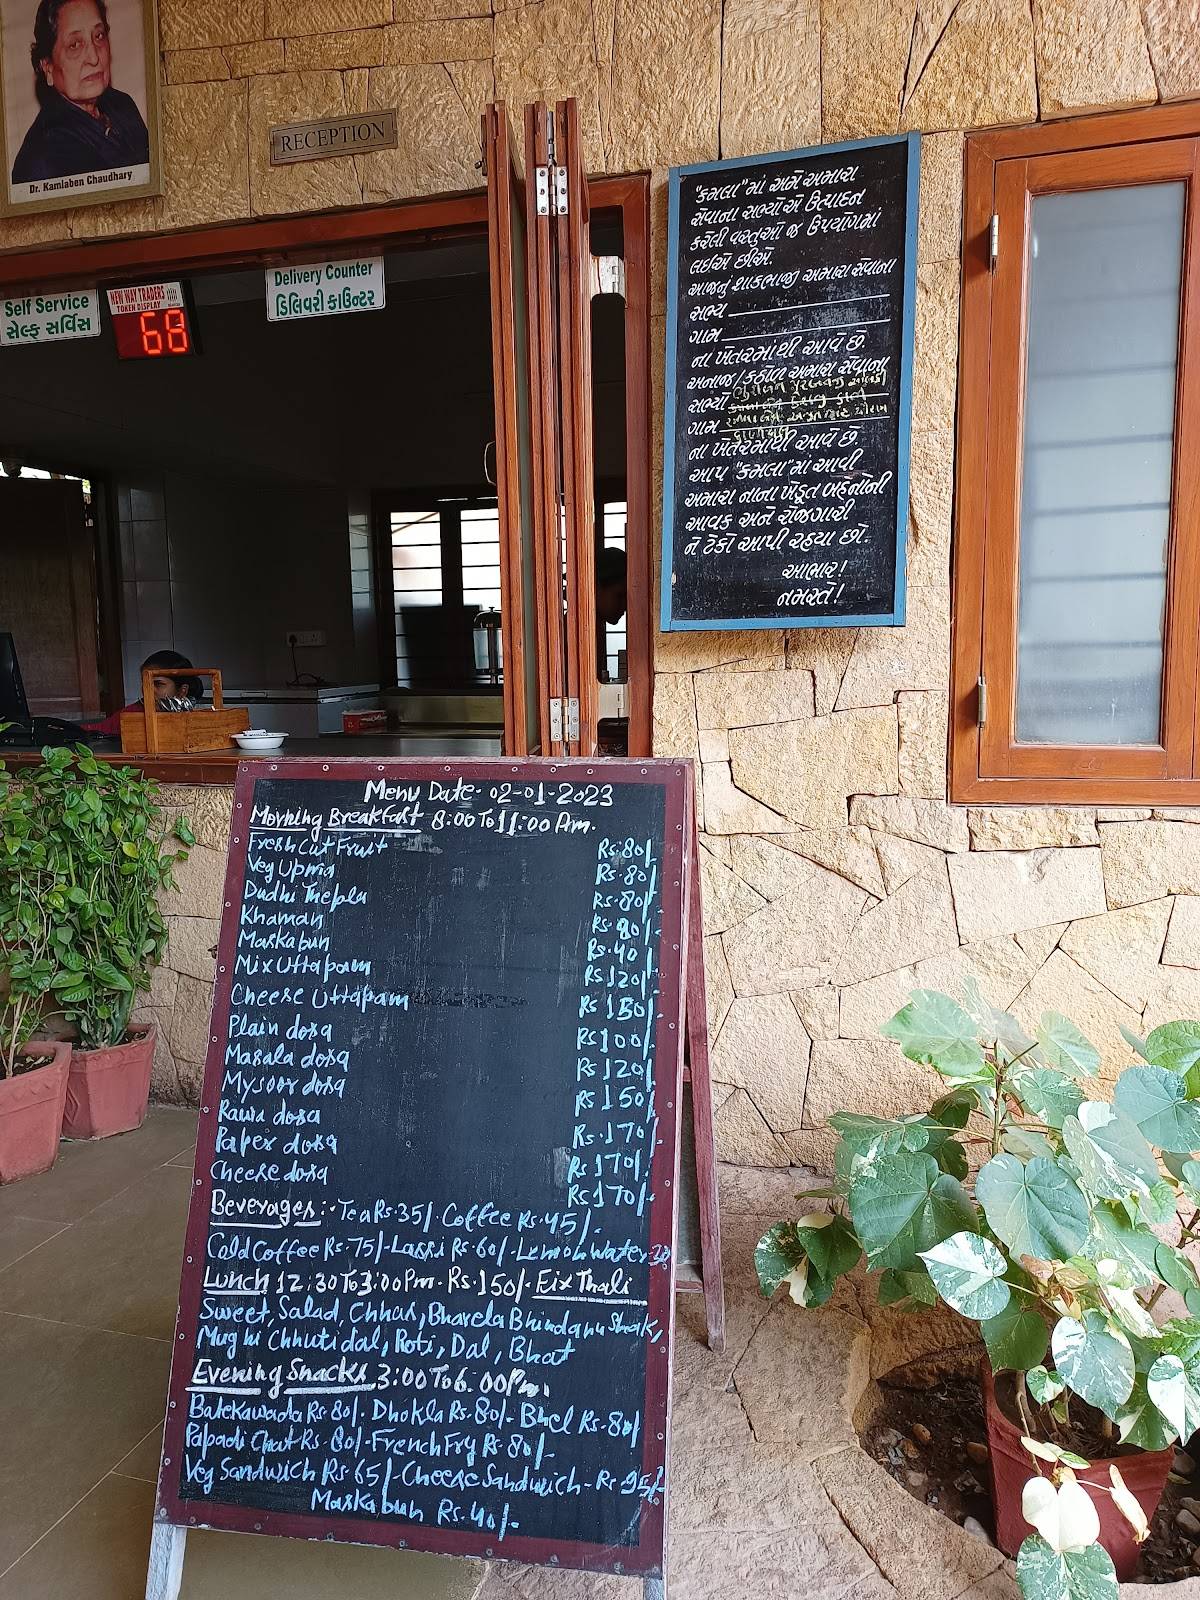 Dr. Kamlaben Chaudhary
RECEPTION
Self Service
સેલ્ફ સર્વિસ
NEW WAY TRADERS
TOKEN DISPLAY
68
Delivery Counter
ડિલિવરી કાઉન્ટર
"કમલા"માં અમે અમારા
સેવાના સભ્યોએ ઉત્પાદન
કરેલી વસ્તુઓ જ ઉપયોગમાં
લઈએ છીએ.
આજનું શાકભાજી અમારા સેવાના
સભ્ય
ગામ
ના ખેતરમાંથી આવે છે.
અનાજ/કઠોળ અમારા સેવાના
સભ્યો
ગામ
ના ખેતરમાંથી આવે છે.
આપ "કમલા"માં આવી
અમારા નાના ખેડૂત બહેનોની
આવક અને રોજગારી
ને ટેકો આપી રહયા છો.
આભાર!
નમસ્તે!
Menu Date- 02-01-2023
Morning Breakfast 8:00 To 11:00 Am.
Fresh Cut Fruit Rs.80/-
Veg Upma Rs.80/-
Dudhi Thepla Rs.80/-
Khaman Rs.80/-
Maska bun Rs.40/-
Mix Uttapam Rs 120/-
Cheese Uttapam Rs 150/-
Plain dosa Rs 100/-
Masala dosa Rs 120/-
Mysoor dosa Rs 150/-
Rawa dosa Rs.170/-
Paper dosa Rs 170/-
Cheese dosa Rs 170/-
Beverages:- Tea Rs.35/- Coffee Rs.45/-
Cold Coffee Rs.75/- Lassi Rs.60/- Lemon Water-20
Lunch 12:30 To 3:00 Pm- Rs.150/- Fix Thali
Sweet, Salad, Chhas, Bharela Bhindanu Shak,
Mug ni Chhuti dal, Roti, Dal, Bhat
Evening Snacks 3:00 To 6.00 Pm.
Batekawada Rs.80/- Dhokla Rs.80/- Bhel Rs.80/-
Papadi Chat Rs.80/- French Fry Rs.80/-
Veg Sandwich Rs.65/- Cheese Sandwich- Rs.95/-
Maska bun Rs.40/-